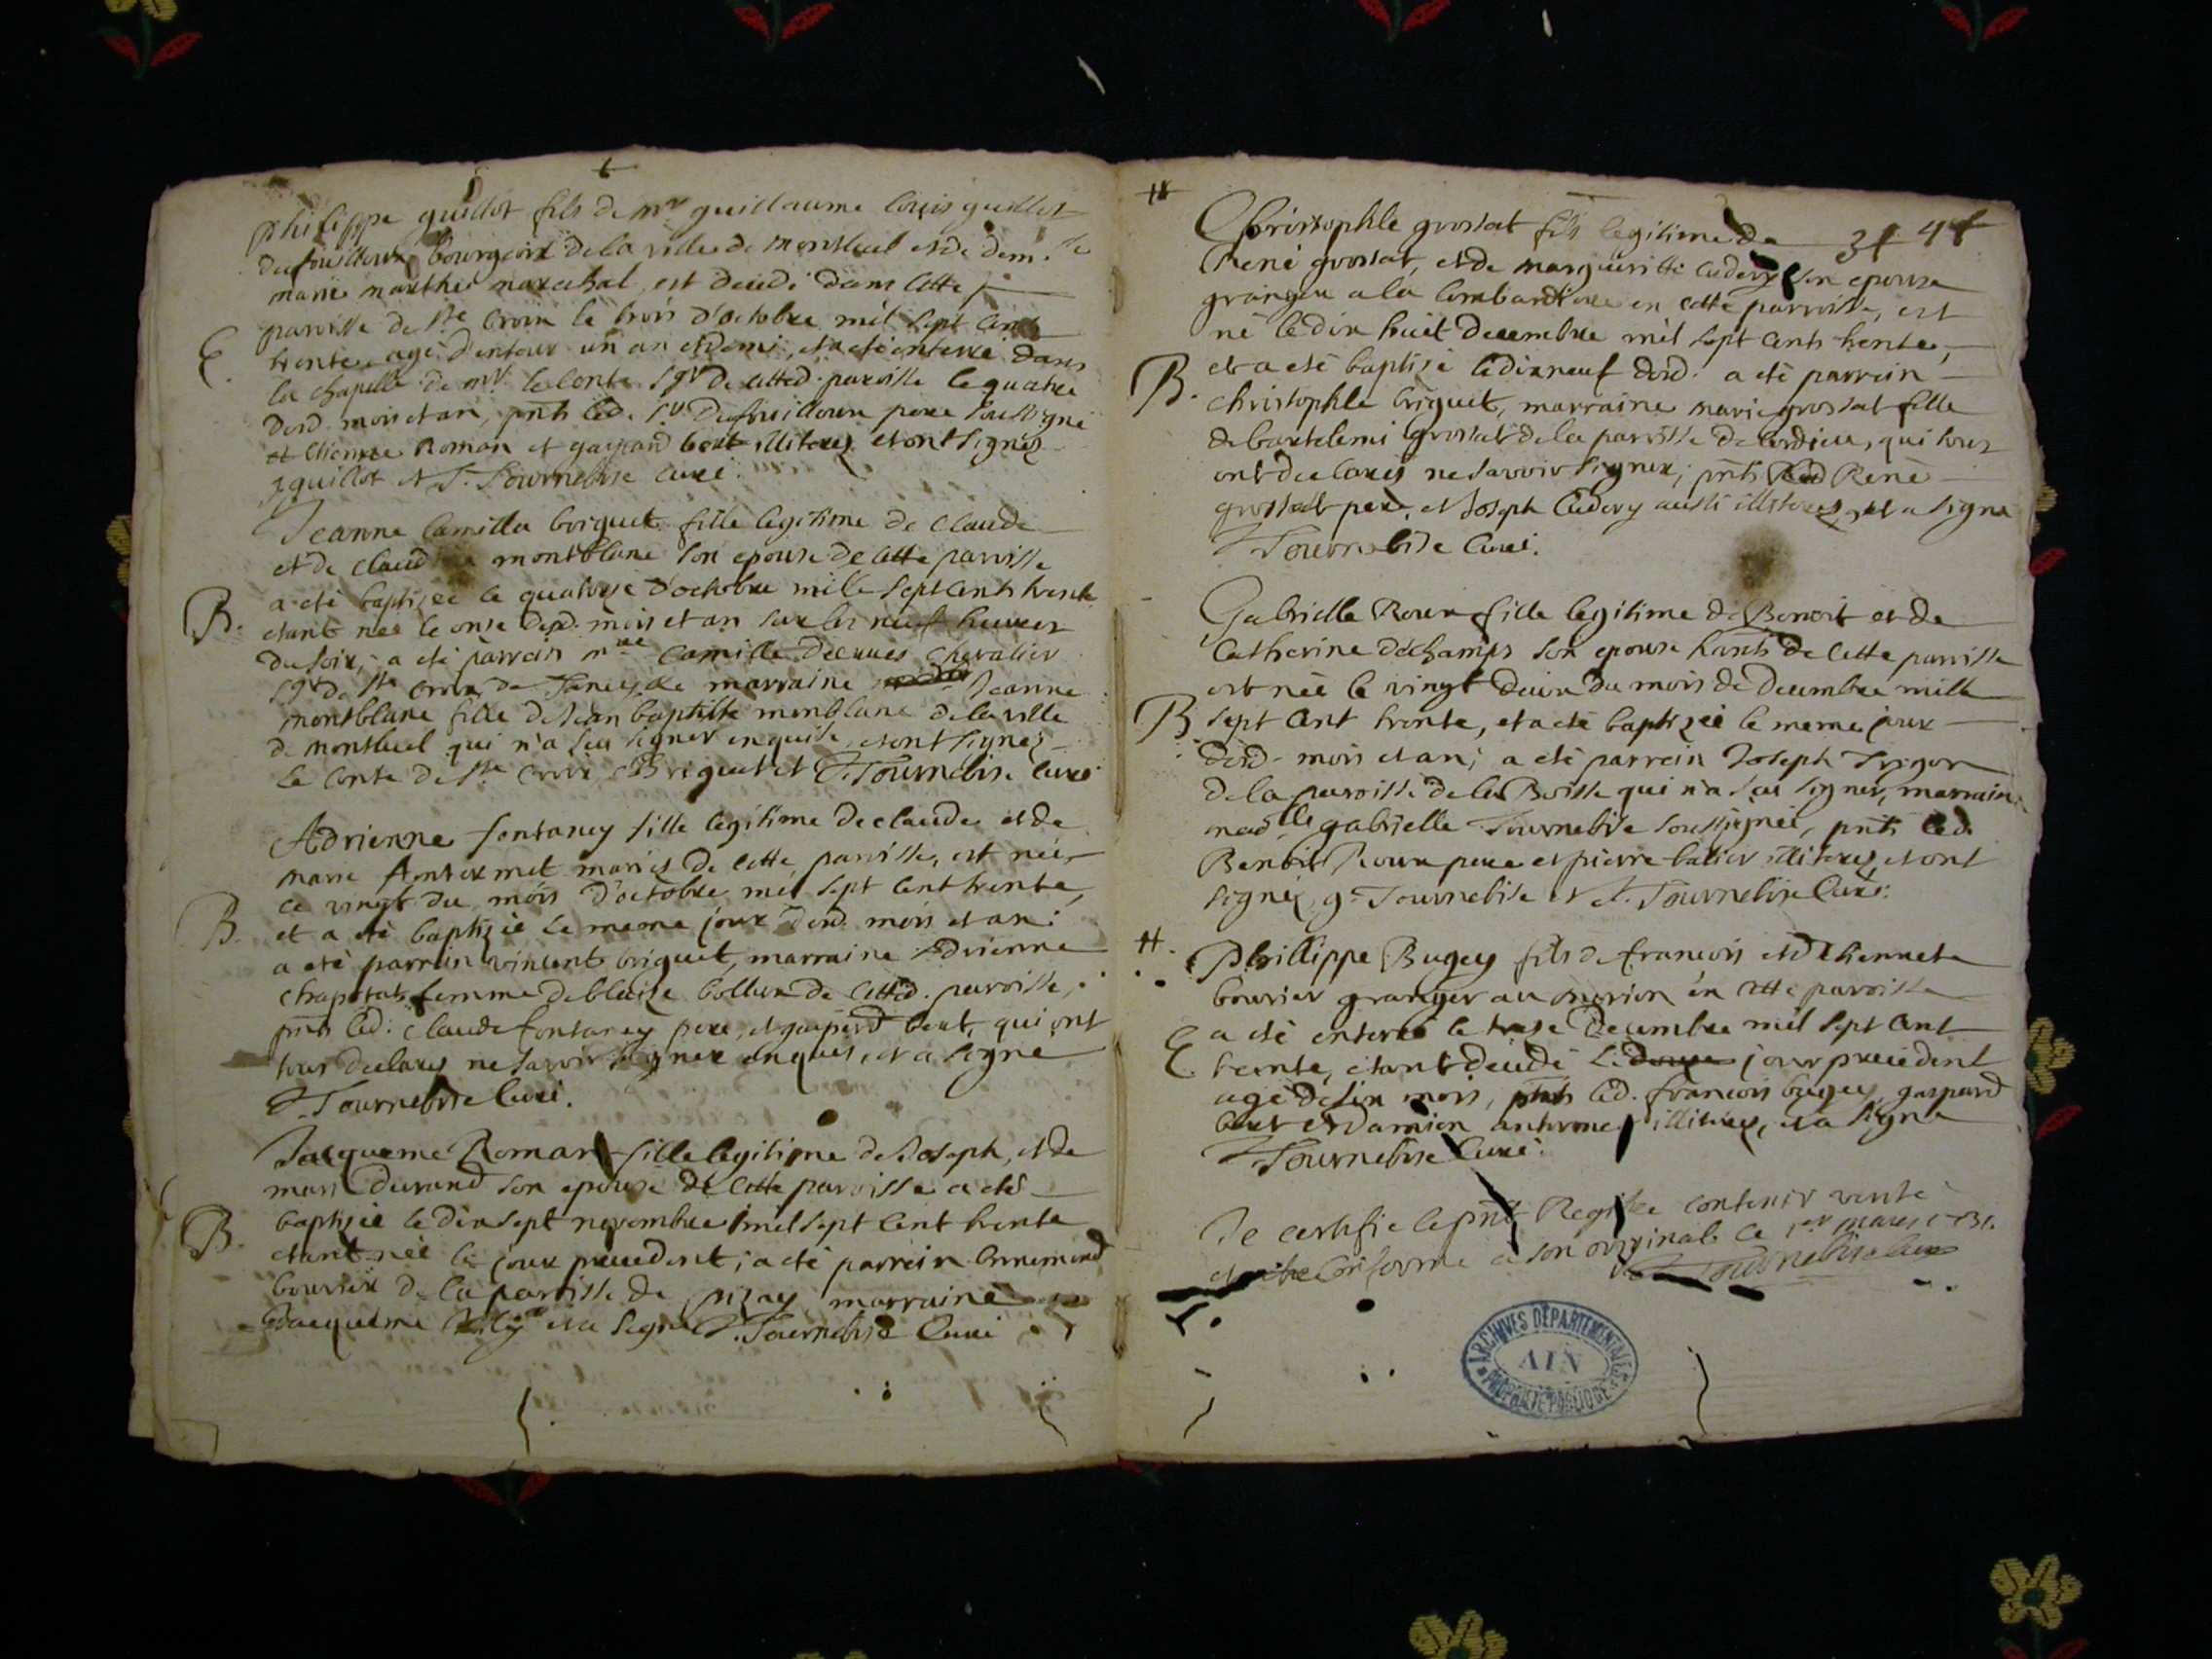 philippe guillot fils de mr guillaume louis guillot
dufouilloux bourgeoix de la ville de montluel et de dem.lle
marie marthe marechal, est decedé dans cette
paroisse de Ste Croix le trois d'octobre mil sept cent
E. trente agé d'entour un an et demi, et a eté enterré dans
la chapelle de mr le Conte sgr de cetted. paroisse le quatre
desd. mois et an, pnts led. sr Dufouilloux pere soussigné
et etienne Roman et gaspard bert illiterez et ont signez
guillot et J. Tournebise Curé.
Jeanne Camilla briguet fille legitime de claude
et de claud montblanc son epouse de cette parroisse
B. a eté baptizée le quatorze d'octobre mille sept cents trente
etant née le onze desd. mois et an sur les neuf heures
du soir, a eté parrein mre Camille Chevalier
sgr de Ste Croix, marraine Jeanne
montblanc fille de Jean baptiste monblanc de la ville
de montluel qui n'a sçu signer enquise et ont signez
le Conte de Ste Croix Briguet et J. Tournebise Curé
Adrienne fontaney fille legitime de claude et de
marie Antermet mariés de cette parroisse, est née
le vingt du mois d'octobre mil sept cent trente,
B. et a eté baptizée le meme jour desd. mois et an:
a eté parrein vincent briguet, marraine Adrienne
chapotat femme de blaize bollux de cetted. paroisse,
pnts led. claude fontaney pere, et gaspard bert, qui ont
tous declarés ne savoir signer enquis, et a signé
J. Tournebise Curé.
Jacqueme Roman fille legitime de Joseph, et de
marie Durand son epouse de cette parroisse a eté
B. baptizée le dix sept novembre mil sept cent trente
etant née le jour precedent; a eté parrein
bourrier de la parroisse de pizay marraine
Jacqueme et a signé J. Tournebise Curé
Christophle grossat fils legitime de 31 4f
René grossat, et de marguéritte Cudery son epouse
granger a la Combardiere en cette parroisse, est
né le dix huit decembre mil sept cents trente,
B. et a eté baptisé le dix neuf desd. a eté parrein
christophle briguet, marraine marie grossat fille
de bartelemi grossat de la parroisse de Cordieu, qui tous
ont declarés ne savoir signer; pnts led René
grossat pere, et Joseph Cudery aussi illiterez, et a signé
J. Tournebise Curé.
Gabrielle Roux fille legitime de Benoit et de
Catherine déchamps son epouse hants de cette parroisse
est née le vingt deux du mois de decembre mille
B sept cent trente, et a eté baptizée le meme jour
desd. mois et an; a eté parrein Joseph
de la paroisse de la Boisse qui n'a sçu signer, marraine
mad.lle gabrielle Tournebise soussignée, pnts led.
Benoit Roux pere et pierre illiterez et ont
signéz, g. Tournebise et J. Tournebise Curé.
H. Phillippe Bugey fils de francois et d'etiennete
bourrier granger au en cette paroisse
E a eté enterré le treze decembre mil sept cent
trente, etant decedé le jour precedent
agé de six mois, pnts led. francois bugey, gaspard
bert et Damien illiterez, et a signé
J. Tournebise Curé.
Je certifie le pnt Registre contenir verité
et etre conforme a son original ce 1er mars 1731.
J. Tournebise Curé
ARCHIVES DEPARTEMENTALES
AIN
PROPRIETE PUBLIQUE